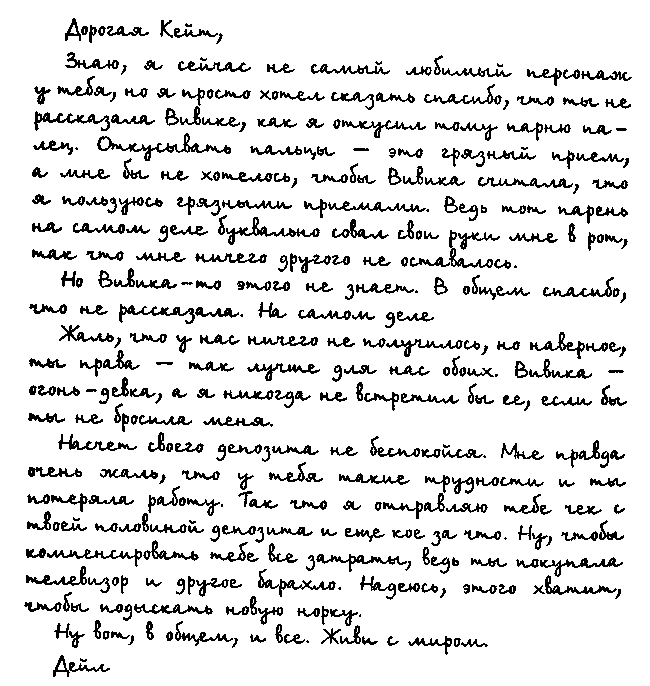 Дорогая Кейт,
Знаю, я сейчас не самый любимый персонаж
у тебя, но я просто хотел сказать спасибо, что ты не
рассказала Вивике, как я откусил тому парню па-
лец. Откусывать пальцы — это грязный прием,
а мне бы не хотелось, чтобы Вивика считала, что
я пользуюсь грязными приемами. Ведь тот парень
на самом деле буквально совал свои руки мне в рот,
так что мне ничего другого не оставалось.
Но Вивика-то этого не знает. В общем спасибо,
что не рассказала. На самом деле
Жаль, что у нас ничего не получилось, но наверное,
ты права — так лучше для нас обоих. Вивика —
огонь-девка, а я никогда не встретил бы ее, если бы
ты не бросила меня.
Насчет своего депозита не беспокойся. Мне правда
очень жаль, что у тебя такие трудности и ты
потеряла работу. Так что я отправляю тебе чек с
твоей половиной депозита и еще кое за что. Ну, чтобы
компенсировать тебе все затраты, ведь ты покупала
телевизор и другое барахло. Надеюсь, этого хватит,
чтобы подыскать новую норку.
Ну вот, в общем, и все. Живи с миром.
Дейл